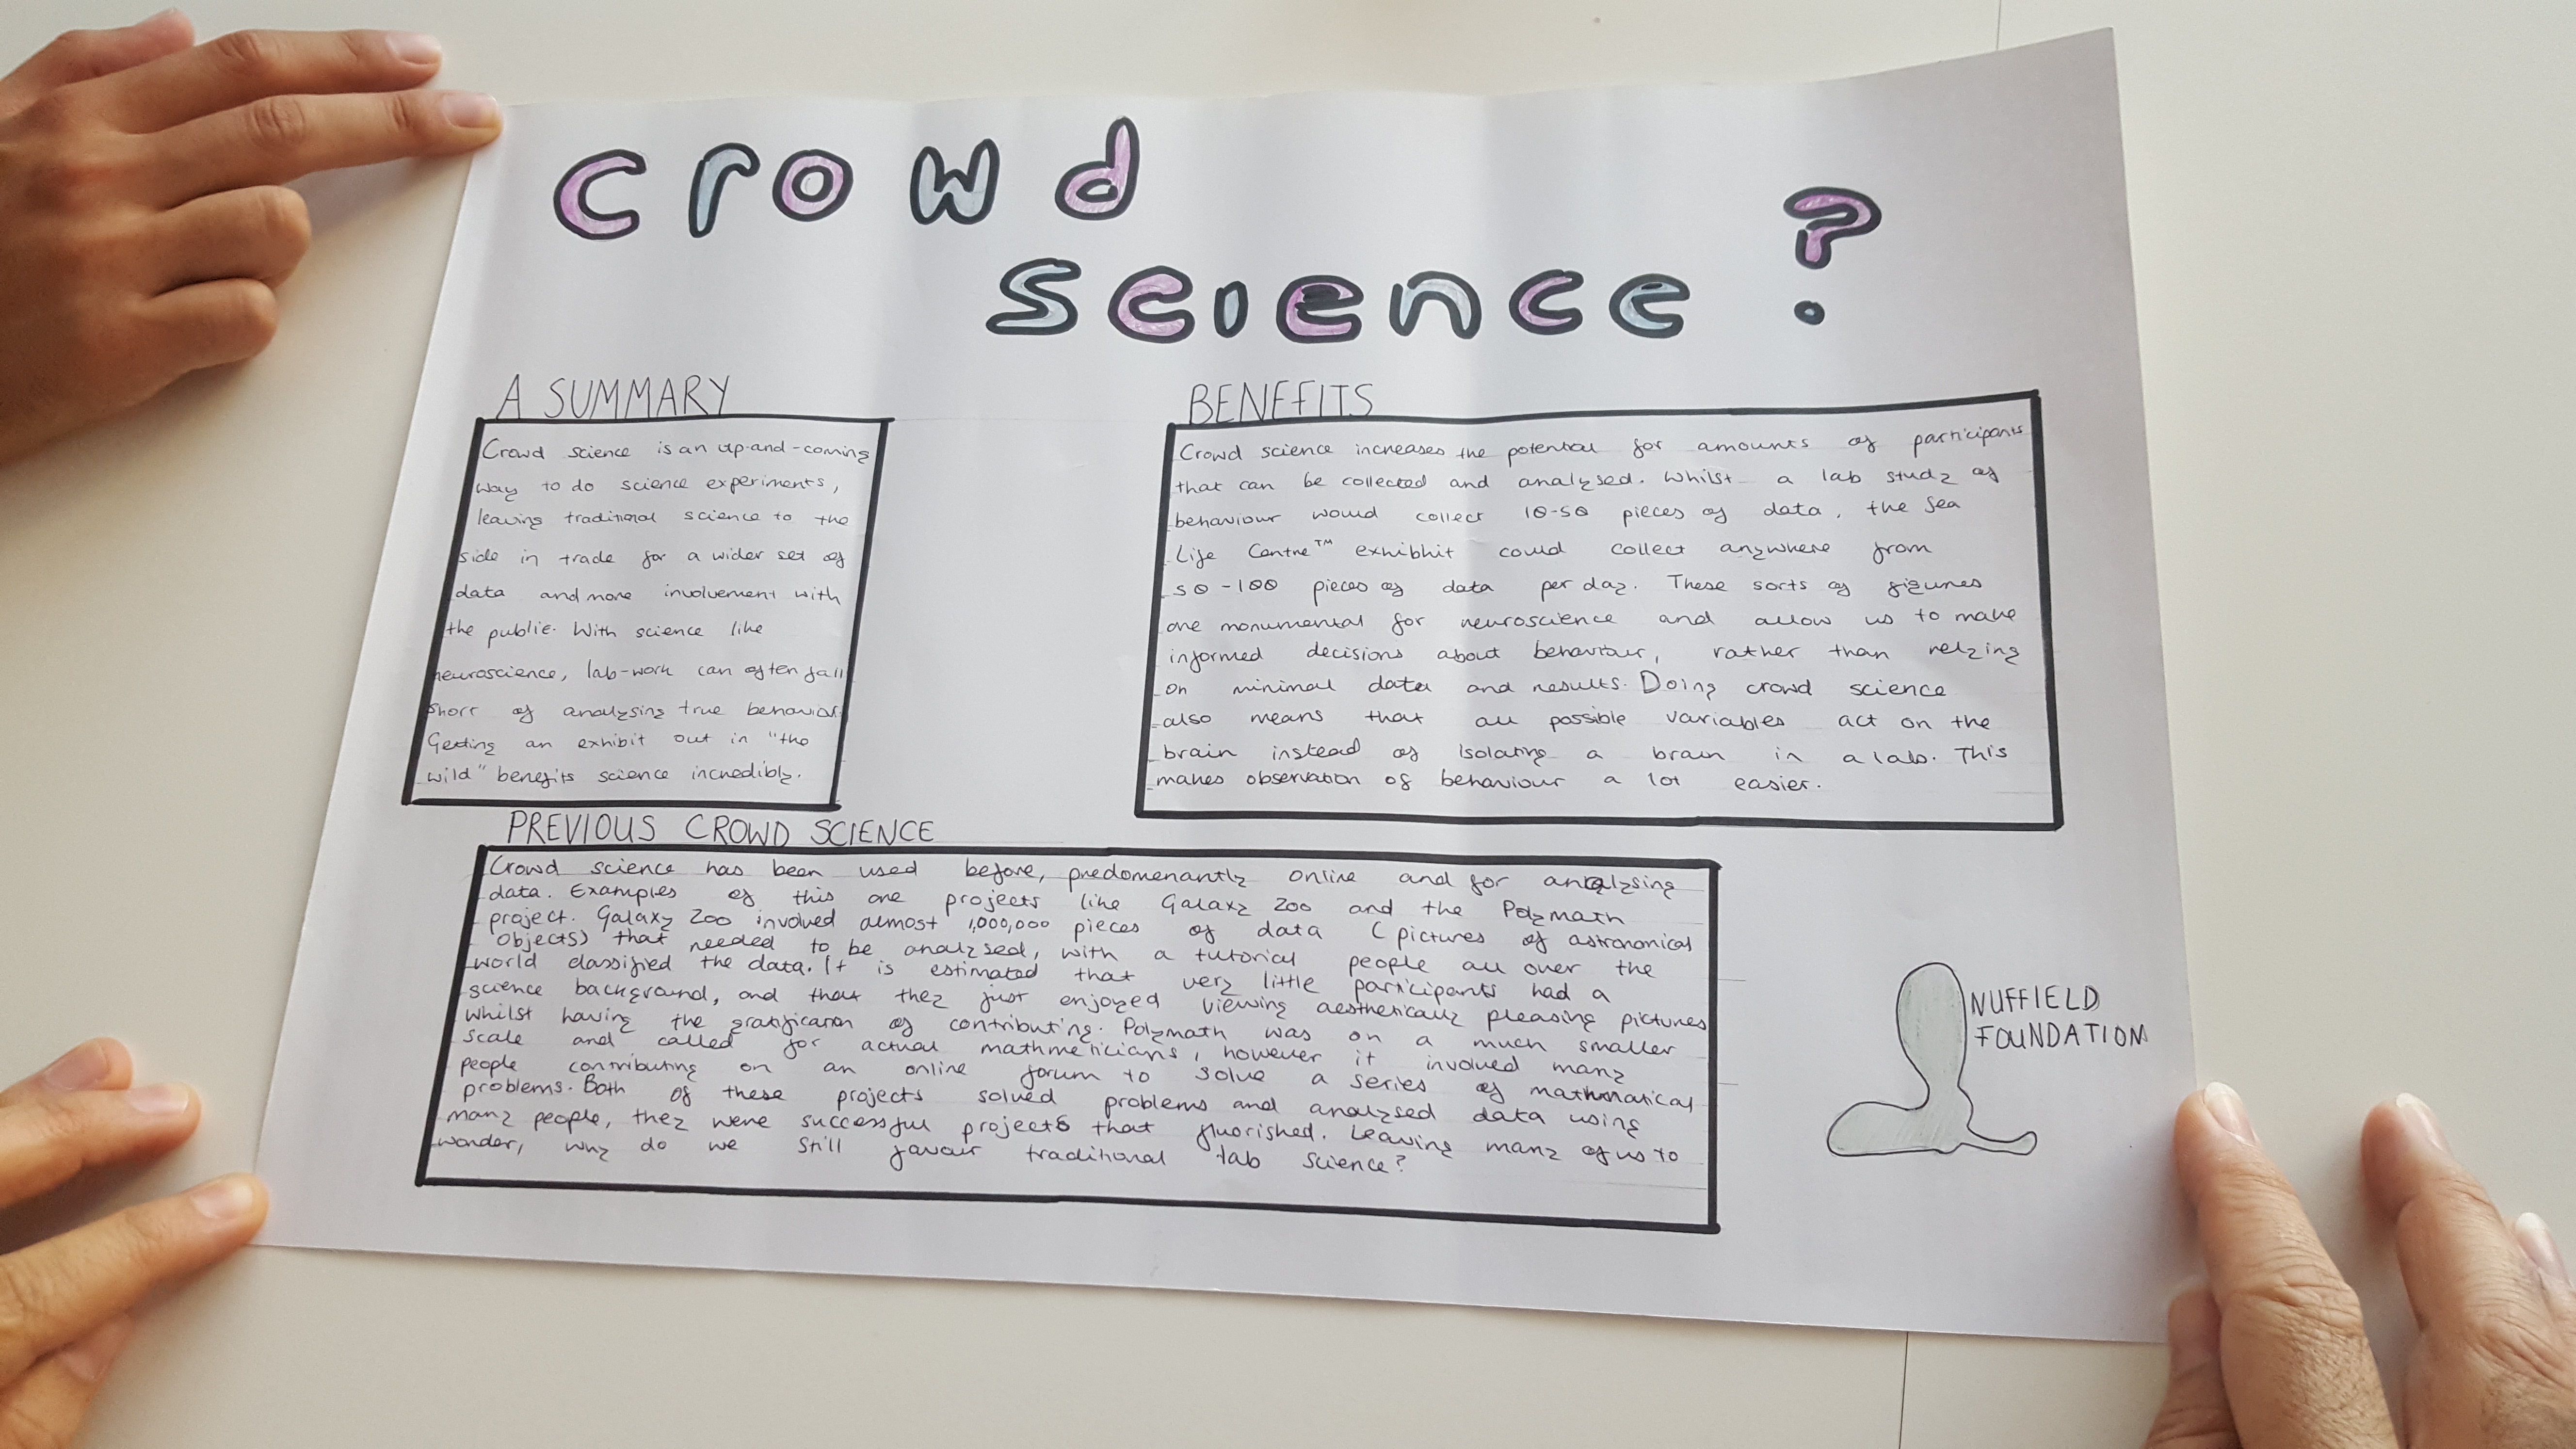 Crowd
Science?
A SUMMARY
Crowd science is an up-and-coming
way to do science experiments,
leaving traditional science to the
side in trade for a wider set of
data and more involvement with
the public. With science like
neuroscience, lab-work can often fall
short of analysing true behaviour
Getting an exhibit out in "the
wild" benefits science incredibly.
BENEFITS
Crowd science increases the potential for amounts of participants
that can be collected and analysed. Whilst a lab study of
behaviour would collect 10-50 pieces of data, the Sea
Life Centre™ exhibhit could collect anywhere from
50-100 pieces of data per day. These sorts of figures
are monumental for neuroscience and allow us to make
informed decisions about behaviour, rather than relying
on minimal data and results. Doing crowd science
also means that all possible variables act on the
brain instead of isolating a brain in a lab. This
makes observation of behaviour a lot easier.
PREVIOUS CROWD SCIENCE
Crowd science has been used before, predomenantly online and for analysing
data. Examples of this are projects like Galaxy Zoo and the Polymath
project. Galaxy Zoo involved almost 1,000,000 pieces of data (pictures of astronomical
objects) that needed to be analysed, with a tutorial people all over the
world classified the data. It is estimated that very little participants had a
science background, and that they just enjoyed viewing aesthetically pleasing pictures
whilst having the gratification of contributing. Polymath was on a much smaller
scale and called for actual mathmeticians, however it involved many
people contributing on an online forum to solve a series of mathmatical
problems. Both of these projects solved problems and analysed data using
many people, they were successful projects that fluorished. Leaving many of us to
wonder, why do we still favour traditional lab science?
NUFFIELD
FOUNDATION